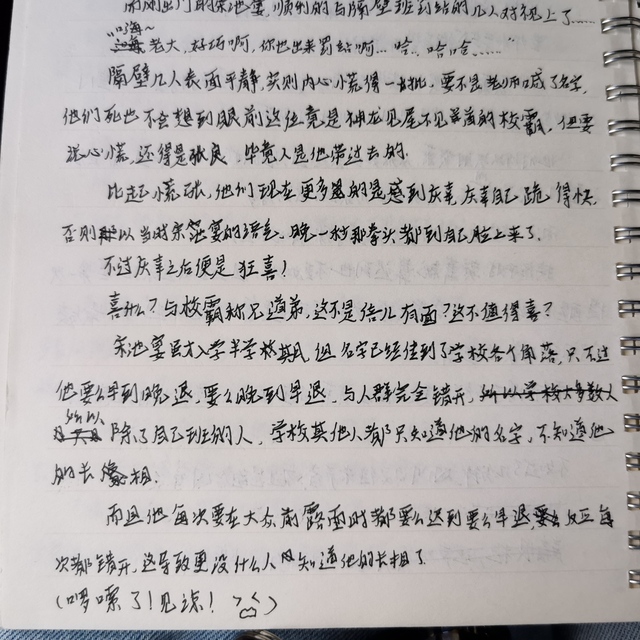 刚刚出门的宋池宴，顺利的与隔壁班到结的几人对视上了……
"嗨~
老大，好巧啊，你也出来罚站啊…哈、哈哈……"
隔壁几人表面平静，实则内心慌得一批，要不是老师喊了名字，
他们死也不会想到眼前这位竟是神龙见尾不见首的校霸，但要
说心慌，还得是张良，毕竟人是他带过去的.
比起慌张，他们现在更多的是感到庆幸，庆幸自己跪得快，
否则以当时宋池宴的语气，晚一秒那拳头都到自己脸上来了.
不过庆幸之后便是狂喜！
喜什么？与校霸称兄道弟，这不是倍儿有面？这不值得喜？
宋池宴虽才入学半学校期，但名字已经传到了学校各个角落，只不过
他要么早到晚退，要么晚到早退，与人群完全错开，所以学校大多数人
所以 除了自己班的人，学校其他人都只知道他的名字，不知道他
的长相.
而且他每次要在大众前露面时都要么迟到要么早退 反正每
次都错开，这导致更没什么人知道他的长相了
（啰嗦了！见谅！><）